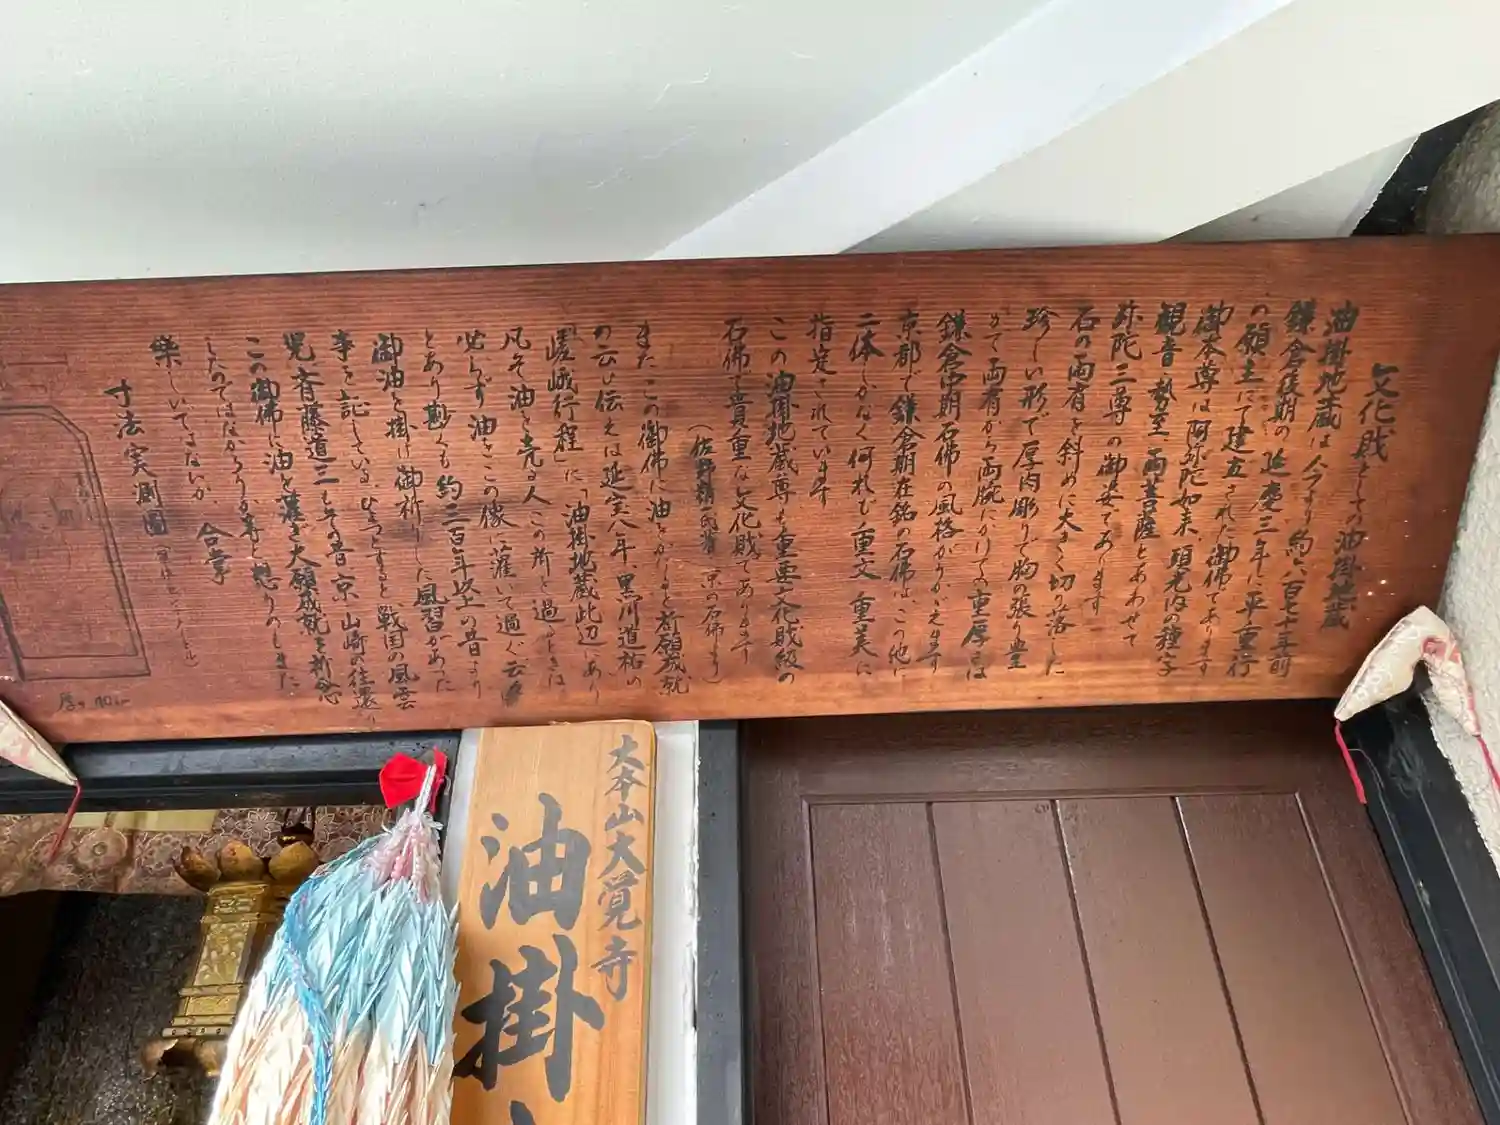 文化財としての油掛地蔵
油掛地蔵は今より約六百七十年前
鎌倉後期の延慶三年に平重行
の願主にて建立された御佛であります
御本尊は阿弥陀如来、頭光内の種子
観音 勢至 両菩薩とあわせて
弥陀三尊の御姿であります
石の両肩を斜めに大きく切り落した
珍しい形で厚肉彫りで胸の張り豊
かで両肩から両腕にかけての重厚さは
鎌倉中期石佛の風格がうかがえます
京都で鎌倉期在銘の石佛は、この他に
二体しかなく何れも重文 重美に
指定されています
この油掛地蔵尊も重要文化財級の
石佛で貴重な文化財であります
(佐野精一氏著 京の石佛より)
またこの御佛に油をかけると祈願成就
の云い伝えは延宝八年、黒川道祐の
嵯峨行程」に「油掛地蔵此辺にあり
凡そ油を売る人この所を過るときは
必らず油をこの像に灌いで過ぐ云々
とあり尠くも約三百年以上の昔より
御油を掛け御祈りした風習があった
事を記している。ひょっとすると、戦国の風雲
児、斉藤道三もその昔、京、山崎の往還り
この御佛に油を灌ぎ大願成就を祈念
したのではなかろうか等と想うのもまた
楽しいではないか、 合掌
寸法実測図
大本山大覚寺
油掛